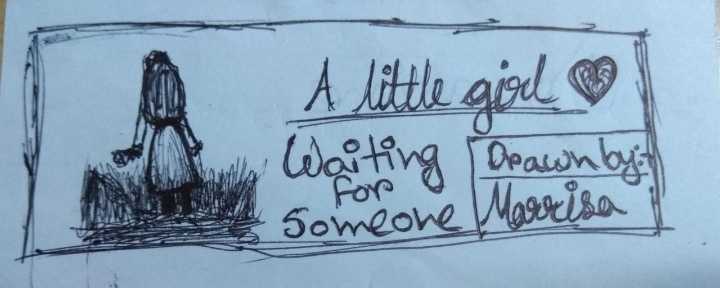 A little girl
Waiting
for
Someone
Drawn by:-
Marrisa